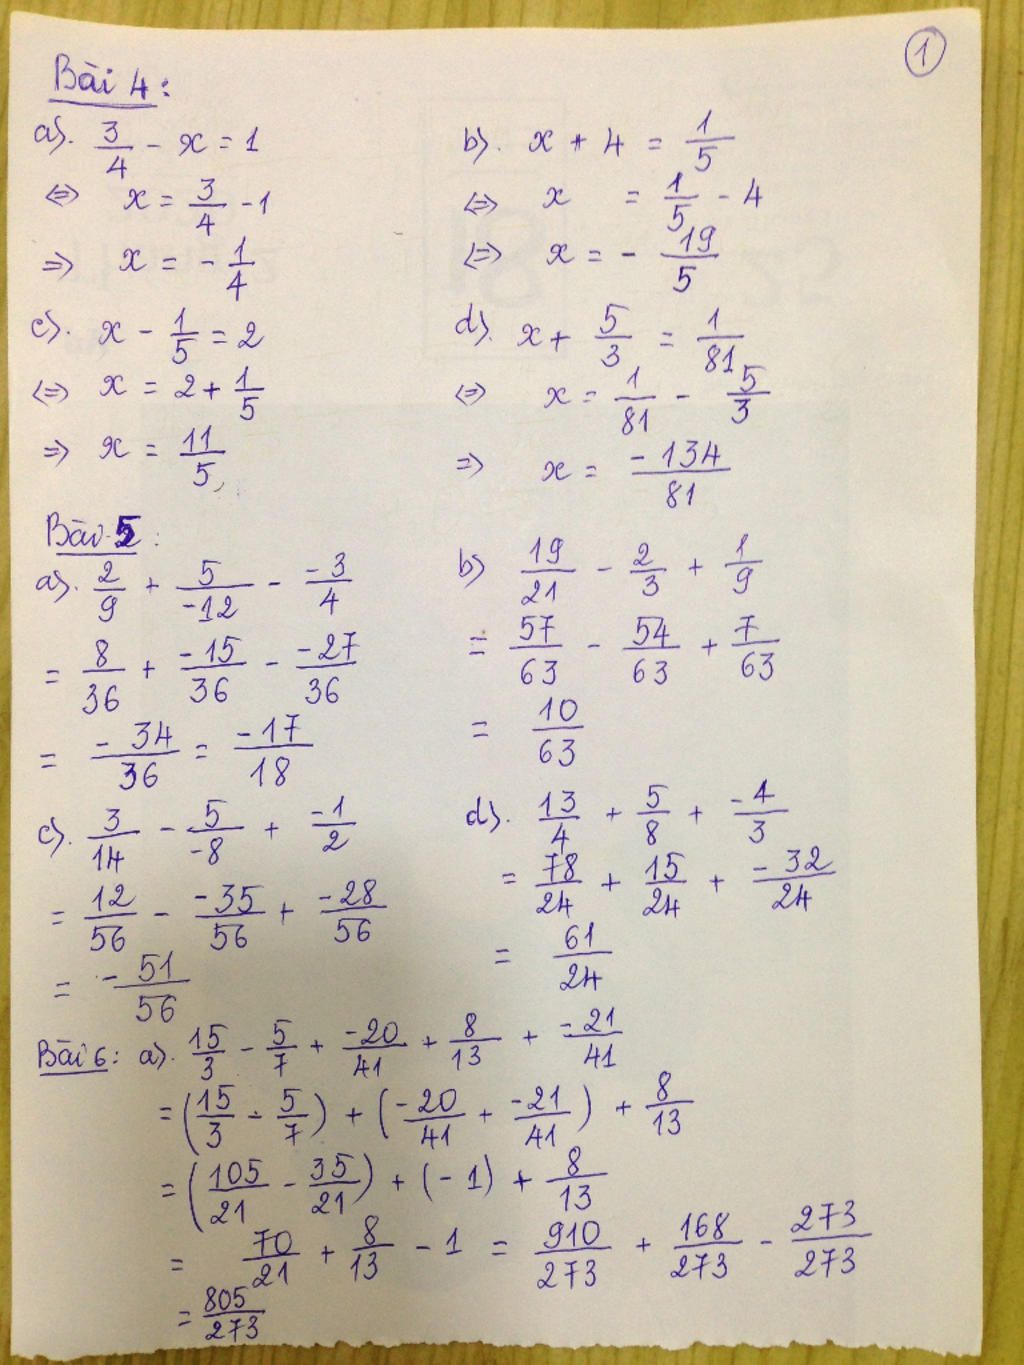 1
Bài 4:
a). 3/4 - x = 1
⇔ x = 3/4 - 1
⇒ x = - 1/4
b). x + 4 = 1/5
⇔ x = 1/5 - 4
⇔ x = - 19/5
c). x - 1/5 = 2
⇔ x = 2 + 1/5
⇒ x = 11/5
d). x + 5/3 = 1/81
⇔ x = 1/81 - 5/3
⇒ x = -134/81
Bài 5:
a). 2/9 + 5/-12 - -3/4
= 8/36 + -15/36 - -27/36
= -34/36 = -17/18
b) 19/21 - 2/3 + 1/9
= 57/63 - 54/63 + 7/63
= 10/63
c). 3/14 - 5/-8 + -1/2
= 12/56 - -35/56 + -28/56
= - 51/56
d). 13/4 + 5/8 + -4/3
= 78/24 + 15/24 + -32/24
= 61/24
Bài 6: a). 15/3 - 5/7 + -20/41 + 8/13 + -21/41
= (15/3 - 5/7) + (-20/41 + -21/41) + 8/13
= (105/21 - 35/21) + (-1) + 8/13
= 70/21 + 8/13 - 1 = 910/273 + 168/273 - 273/273
= 805/273